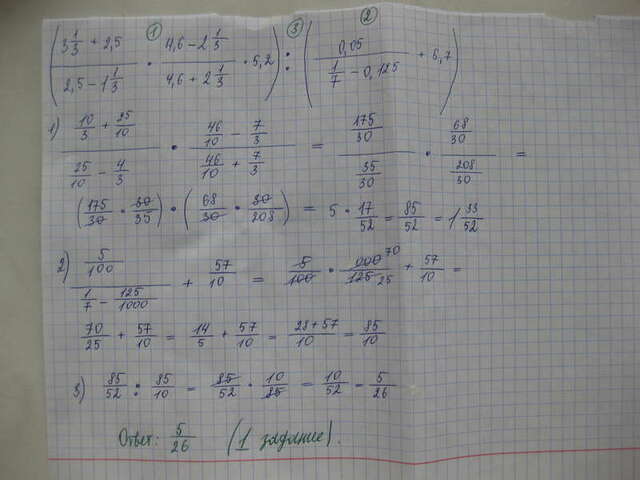 ① ③ ②
((3 1/3 + 2,5)/(2,5 - 1 1/3) · (4,6 - 2 1/3)/(4,6 + 2 1/3) · 5,2) : (0,05/(1/7 - 0,125) + 5,7)
1) (10/3 + 25/10)/(25/10 - 4/3) · (46/10 - 7/3)/(46/10 + 7/3) = (175/30)/(35/30) · (68/30)/(208/30) =
(175/30 · 30/35) · (68/30 · 30/208) = 5 · 17/52 = 85/52 = 1 33/52
2) (5/100)/(1/7 - 125/1000) + 57/10 = 5/100 · 7000/125 + 57/10 =
70/25 + 57/10 = 14/5 + 57/10 = 28+57/10 = 85/10
3) 85/52 : 85/10 = 85/52 · 10/85 = 10/52 = 5/26
Ответ: 5/26 (1 задание).